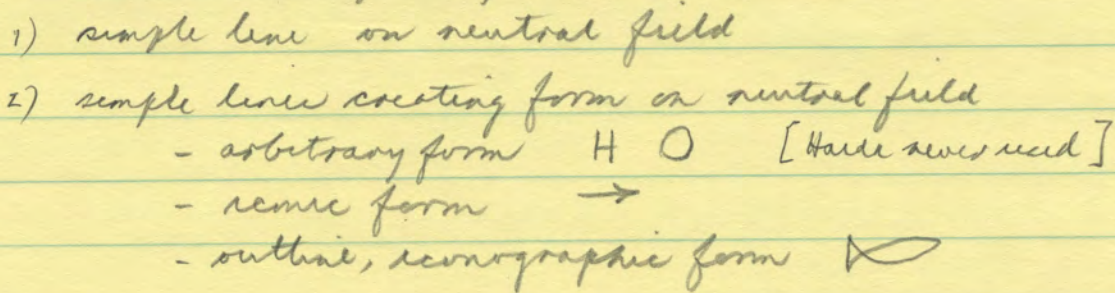 1) simple line on neutral field
2) simple lines creating form on neutral field
- arbitrary form H O [ never used ]
- iconic form →
- outline, iconographic form